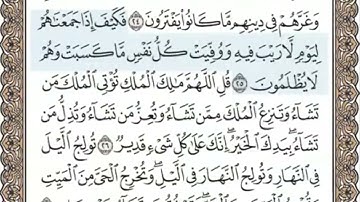 وَغَرَّهُمْ فِي دِينِهِم مَّا كَانُوا۟ يَفْتَرُونَ ٢٤ فَكَيْفَ إِذَا جَمَعْنَٰهُمْ
لِيَوْمٍ لَّا رَيْبَ فِيهِ وَوُفِّيَتْ كُلُّ نَفْسٍ مَّا كَسَبَتْ وَهُمْ
لَا يُظْلَمُونَ ٢٥ قُلِ ٱللَّهُمَّ مَٰلِكَ ٱلْمُلْكِ تُؤْتِي ٱلْمُلْكَ مَن
تَشَآءُ وَتَنزِعُ ٱلْمُلْكَ مِمَّن تَشَآءُ وَتُعِزُّ مَن تَشَآءُ وَتُذِلُّ مَن
تَشَآءُ ۖ بِيَدِكَ ٱلْخَيْرُ ۖ إِنَّكَ عَلَىٰ كُلِّ شَىْءٍ قَدِيرٌ ٢٦ تُولِجُ ٱلَّيْلَ
فِي ٱلنَّهَارِ وَتُولِجُ ٱلنَّهَارَ فِي ٱلَّيْلِ ۖ وَتُخْرِجُ ٱلْحَىَّ مِنَ ٱلْمَيِّتِ